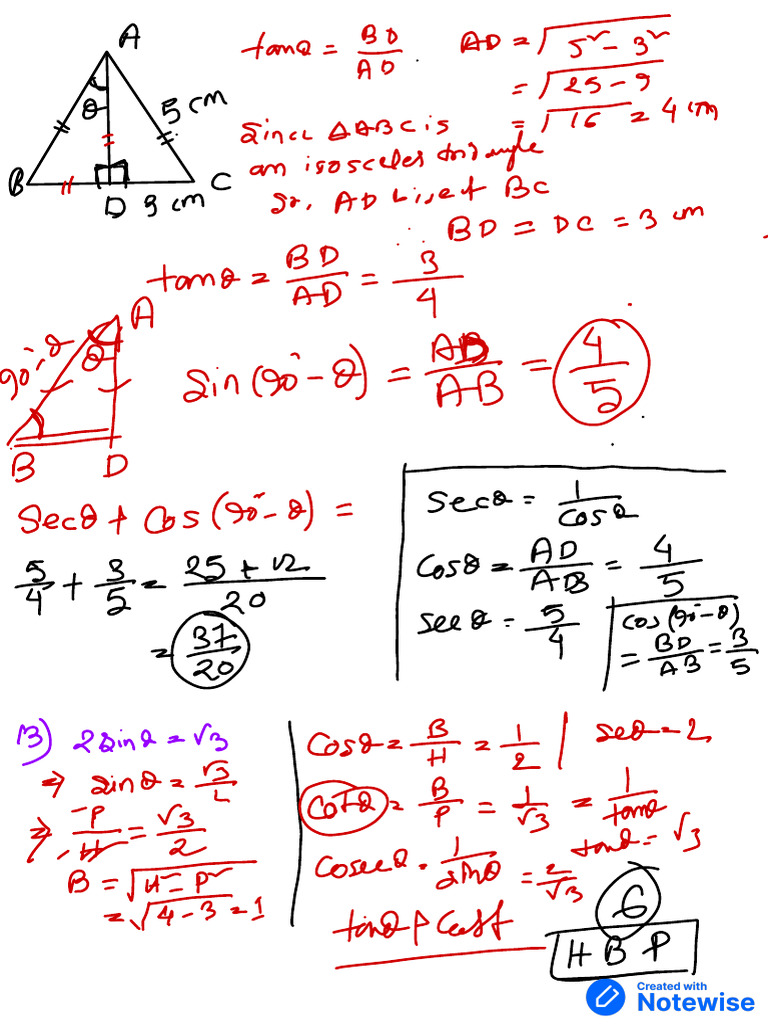 A
θ
5 cm
B
D
3 cm
C
tanθ = BD/AD
AD = √5² - 3²
= √25 - 9
= √16 = 4 cm
Since ΔABC is
an isosceles triangle
So, AD bisect BC
BD = DC = 3 cm
tanθ = BD/AD = 3/4
A
θ
90°-θ
B
D
Sin(90°-θ) = AD/AB = 4/5
Secθ + Cos(90°-θ) =
5/4 + 3/5 = 25+12/20
= 37/20
Secθ = 1/Cosθ
Cosθ = AD/AB = 4/5
Secθ = 5/4
Cos(90°-θ)
= BD/AB = 3/5
13) 2Sinθ = √3
⇒ Sinθ = √3/2
⇒ P/H = √3/2
B = √H² - P²
= √4-3 = 1
Cosθ = B/H = 1/2
Secθ = 2
Cotθ = B/P = 1/√3 = 1/tanθ
tanθ = √3
Cosecθ = 1/Sinθ = 2/√3
6
H B P
Created with
Notewise